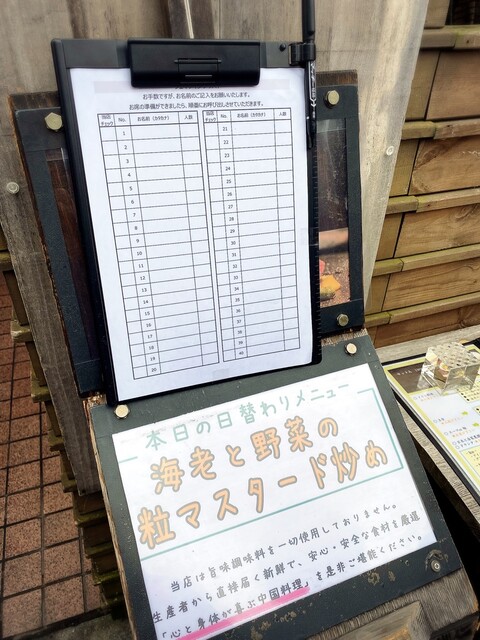 お手数ですが、お名前のご記入をお願いいたします。
お席の準備ができましたら、順番にお呼び出しさせていただきます。
チェック No. お名前（カタカナ） 人数
1
2
3
4
5
6
7
8
9
10
11
12
13
14
15
16
17
18
19
20
チェック No. お名前（カタカナ） 人数
21
22
23
24
25
26
27
28
29
30
31
32
33
34
35
36
37
38
39
40
本日の日替わりメニュー
海老と野菜の
粒マスタード炒め
当店は旨味調味料を一切使用しておりません。
生産者から直接届く新鮮で、安心・安全な食材を厳選
「心と身体が喜ぶ中国料理」を是非ご堪能ください。